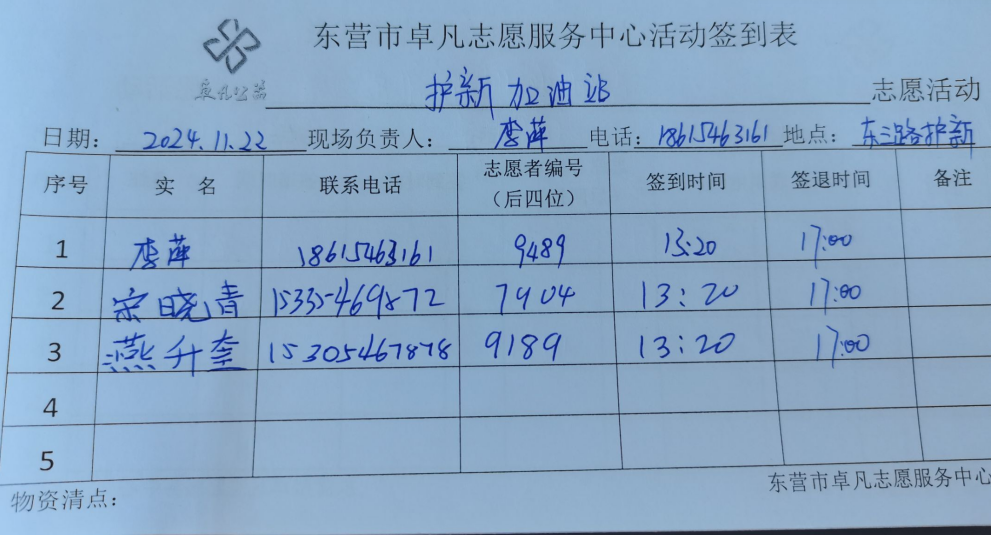 东营市卓凡志愿服务中心活动签到表
卓凡公益 护新加油站 志愿活动
日期: 2024.11.22 现场负责人: 李萍 电话: 18615463161 地点: 东三路护新
序号 实 名 联系电话 志愿者编号(后四位) 签到时间 签退时间 备注
1 李萍 18615463161 9489 13:20 17:00
2 宗晓青 15335469872 7904 13:20 17:00
3 燕升奎 15305467878 9189 13:20 17:00
4
5
物资清点:
东营市卓凡志愿服务中心